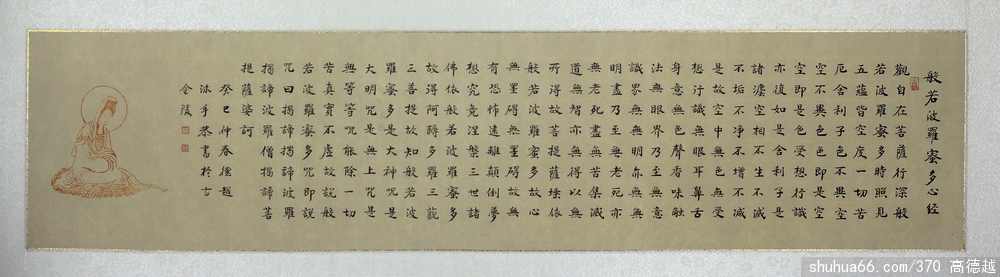 般若波羅蜜多心经
觀自在菩薩行深般
若波羅蜜多時照見
五蘊皆空度一切苦
厄舍利子色不異空
空不異色色即是空
空即是色受想行識
亦復如是舍利子是
諸法空相不生不滅
不垢不淨不增不減
是故空中無色無受
想行識無眼耳鼻舌
身意無色聲香味觸
法無眼界乃至無意
識界無無明亦無無
明盡乃至無老死亦
無老死盡無苦集滅
道無智亦無得以無
所得故菩提薩埵依
般若波羅蜜多故心
無罣礙無罣礙故無
有恐怖遠離顛倒夢
想究竟涅槃三世諸
佛依般若波羅蜜多
故得阿耨多羅三藐
三菩提故知般若波
羅蜜多是大神咒是
大明咒是無上咒是
無等等咒能除一切
苦真實不虛故說般
若波羅蜜多咒即說
咒曰揭諦揭諦波羅
揭諦波羅僧揭諦菩
提薩婆訶
癸巳仲春德越
沐手恭書於古
金陵
shuhua66.com/370 高德越